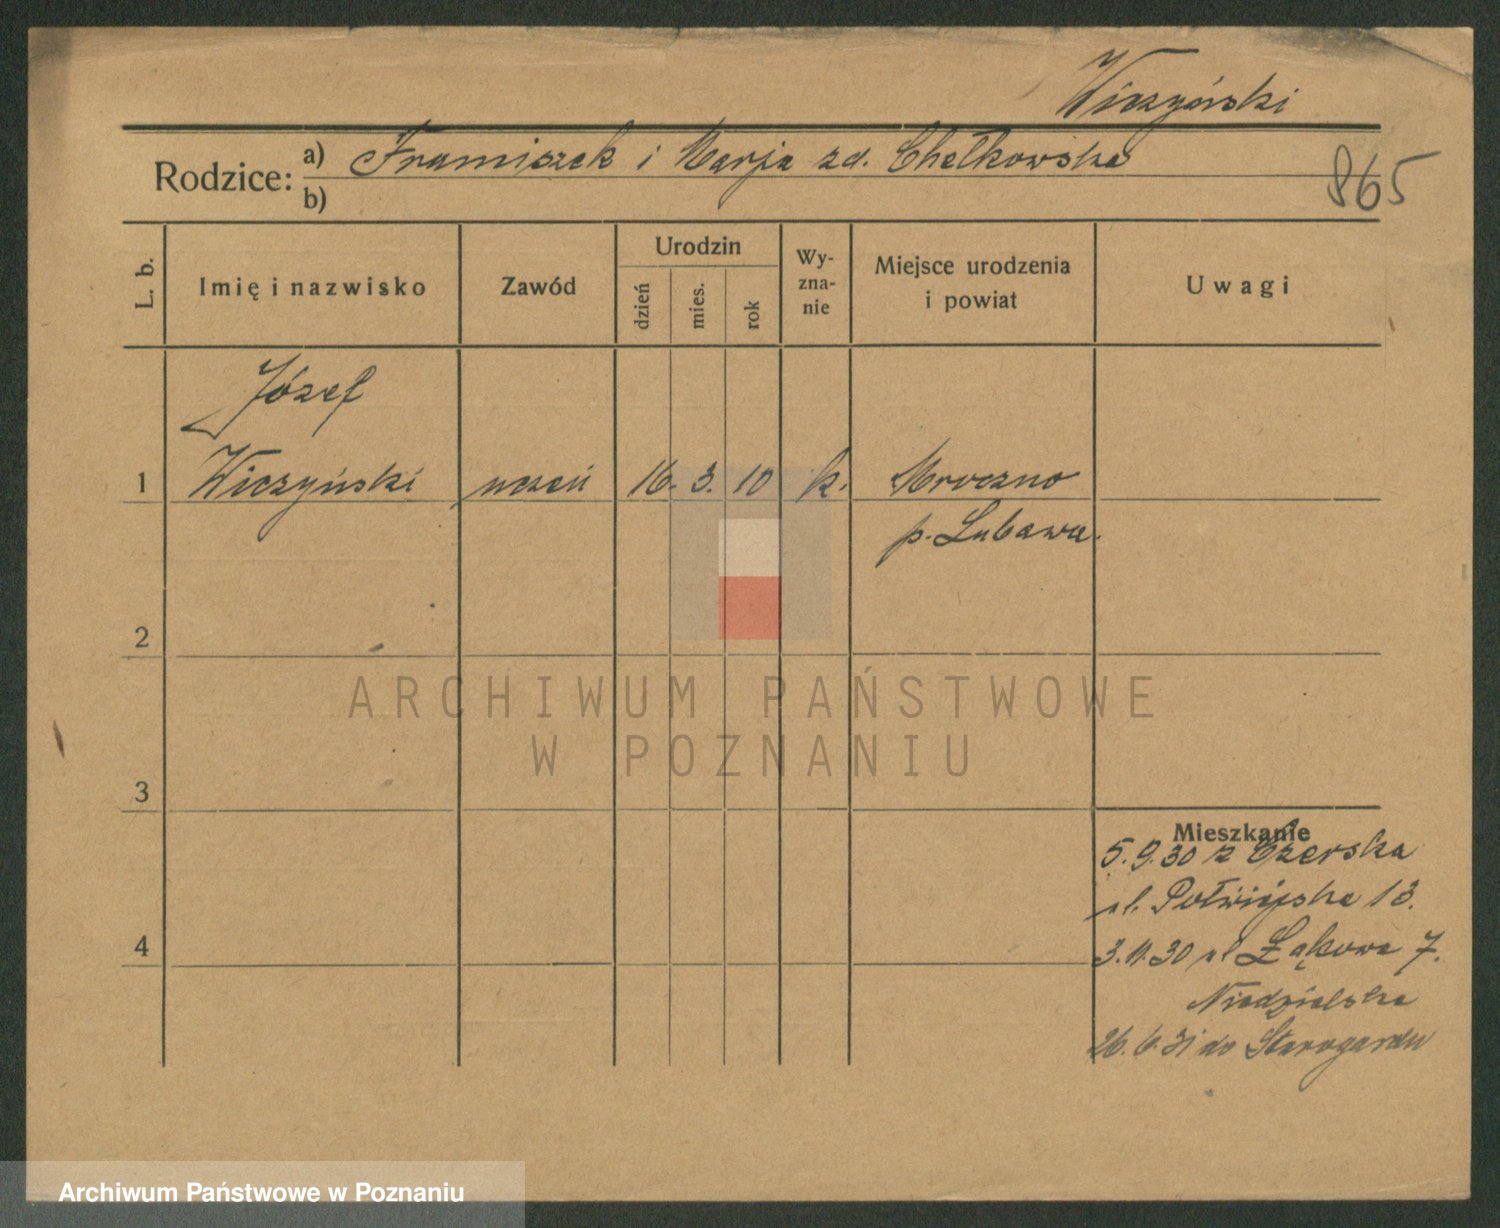 Wiczyński
Rodzice: a) Franciszek i Marja zd. Chełkowska
b)
865
L. b. Imię i nazwisko Zawód Urodzin dzień mies. rok Wyznanie Miejsce urodzenia i powiat Uwagi
Józef
1 Wiczyński uczeń 16. 3. 10 k. Mroczno
p. Lubawa.
2
ARCHIWUM PAŃSTWOWE
W POZNANIU
3
Mieszkanie
5.9.30 z Czerska
ul. Półwiejska 13.
4 3.11.30 ul Łąkowa 7.
Niedzielska
26.6.31 do Starogardu
Archiwum Państwowe w Poznaniu